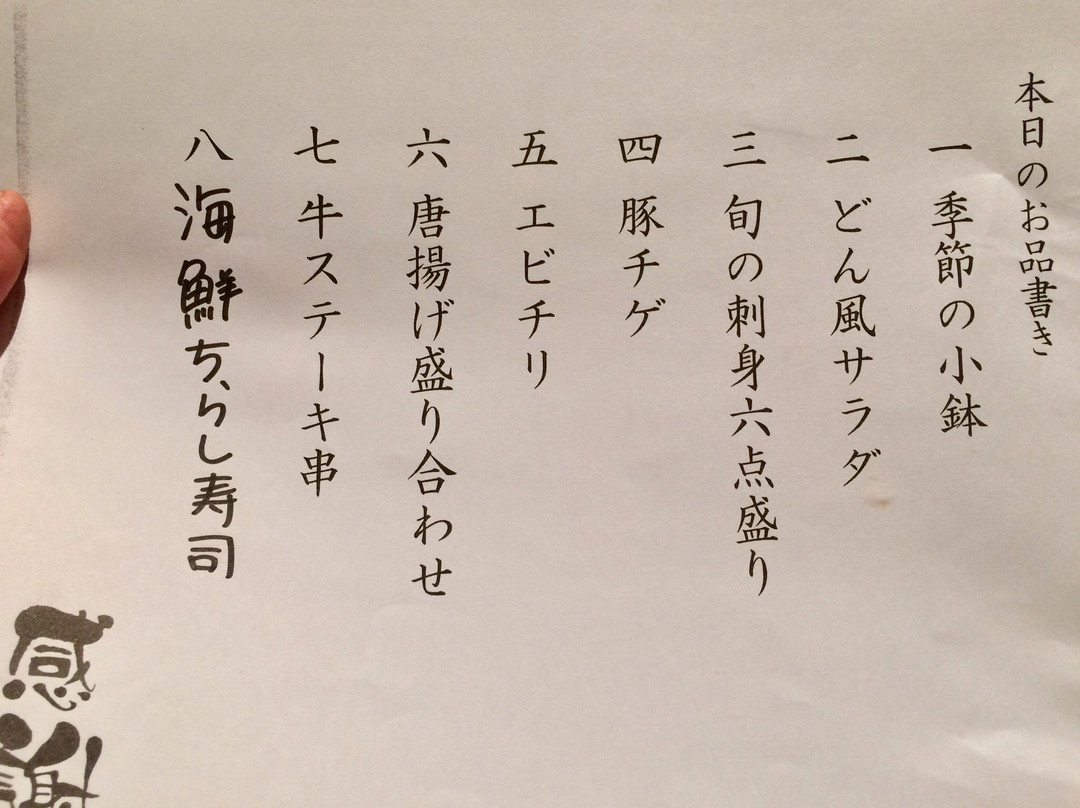 本日のお品書き
一 季節の小鉢
二 どん風サラダ
三 旬の刺身六点盛り
四 豚チゲ
五 エビチリ
六 唐揚げ盛り合わせ
七 牛ステーキ串
八 海鮮ちらし寿司
感謝